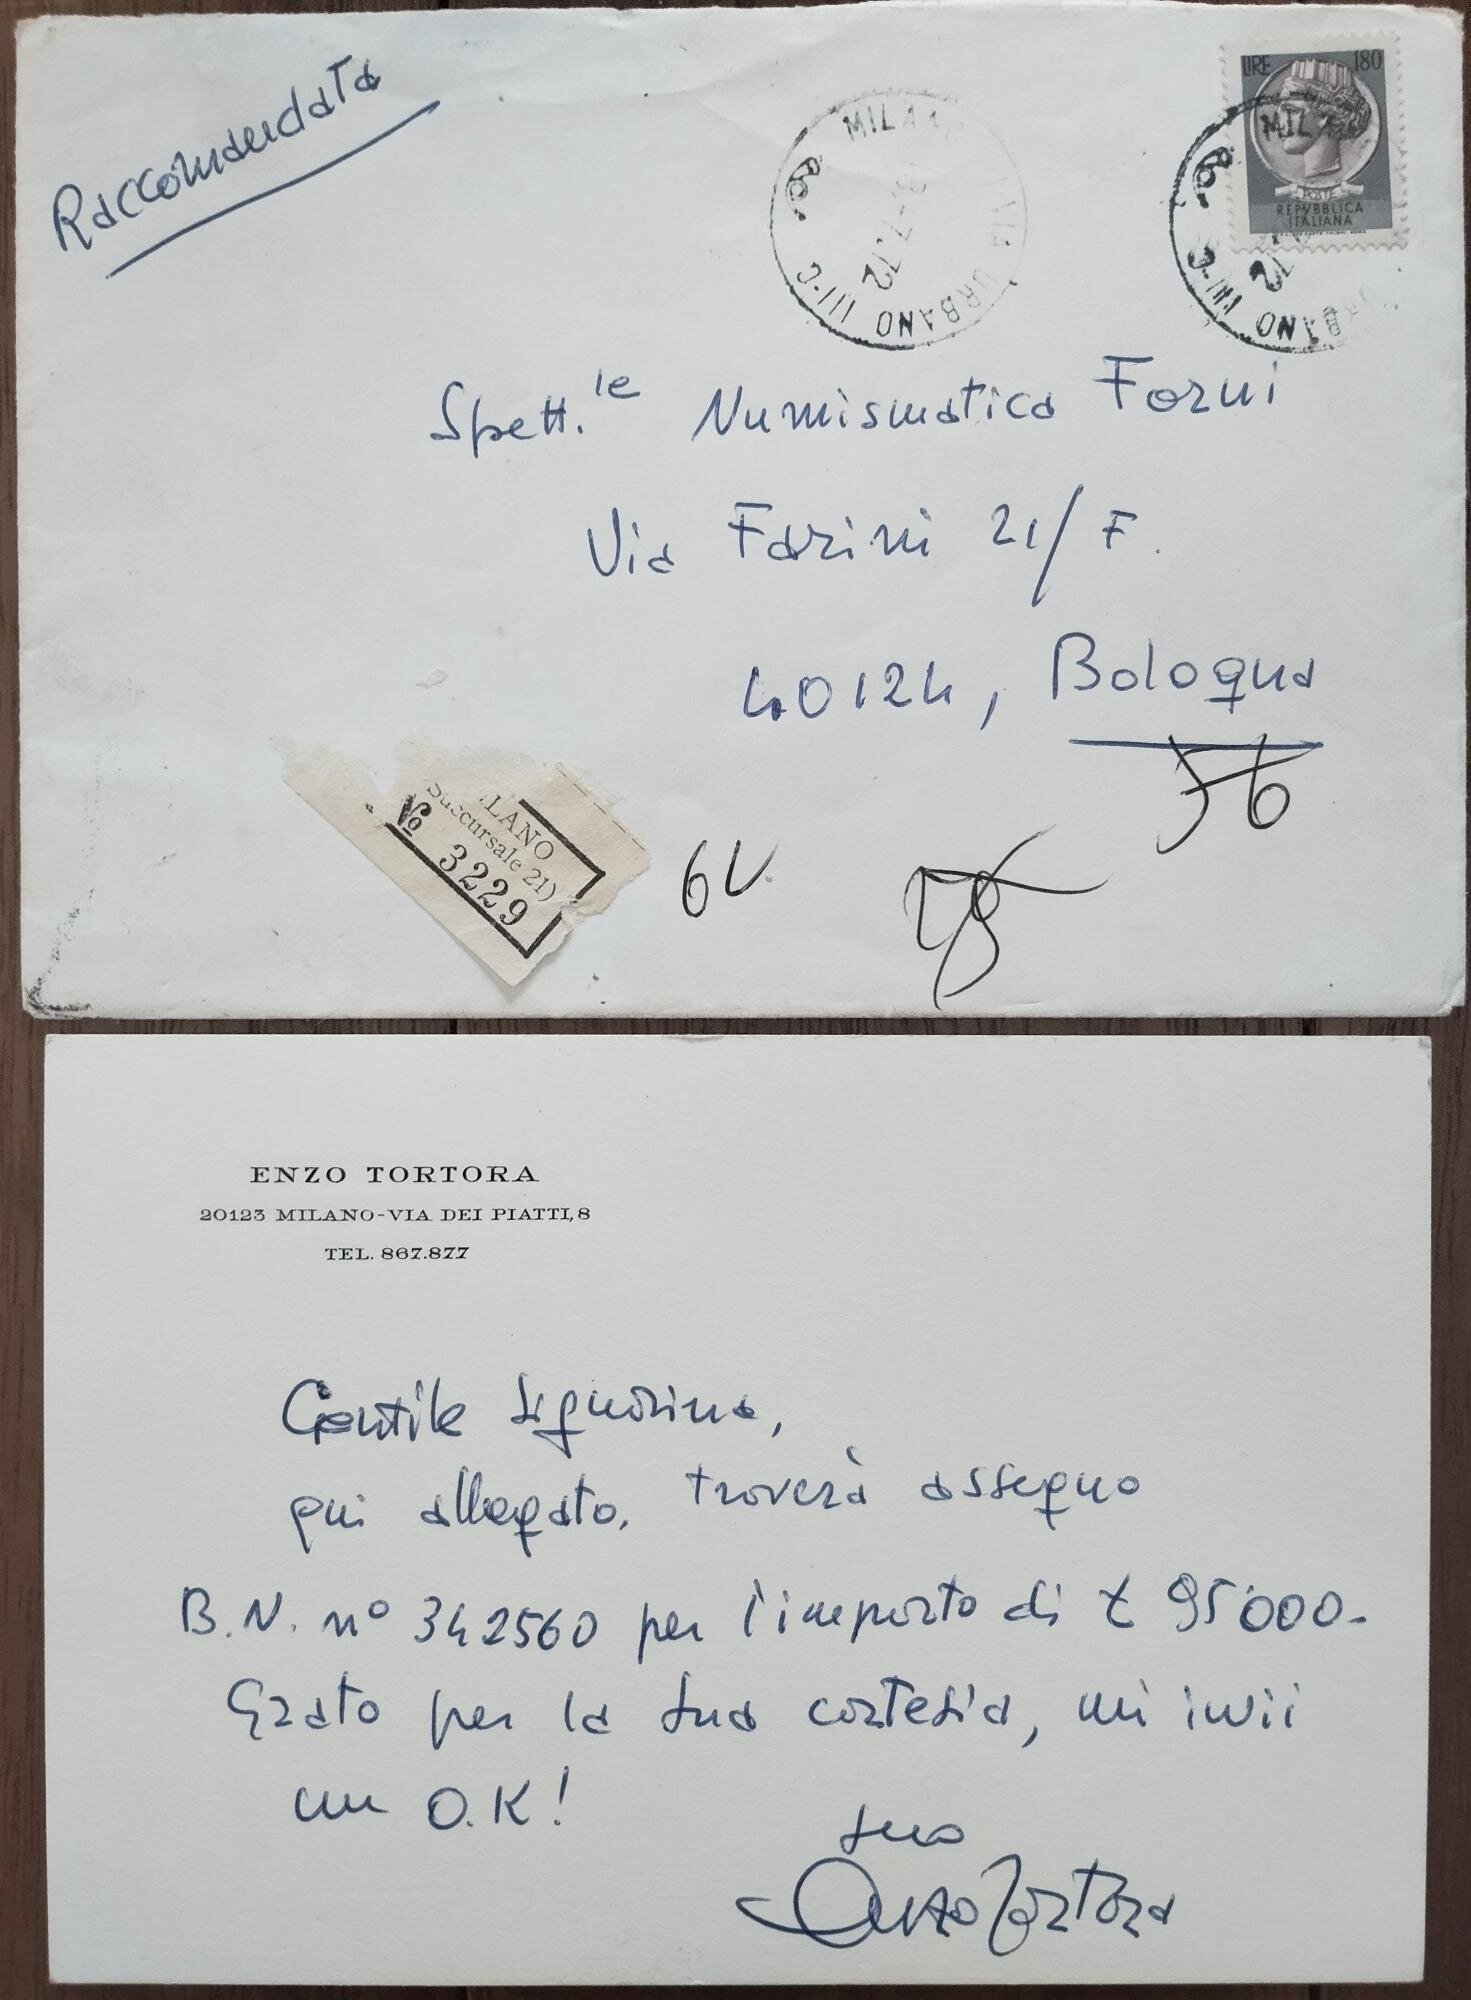 Raccomandata
LIRE 180
POSTE
REPVBBLICA
ITALIANA
MILA
URBANO III-C
-7.72
MIL
BANO III-C
72
Spett.le Numismatica Forni
Via Farini 21/F.
40124, Bologna
56
LANO
Succursale 21)
No 3229
ENZO TORTORA
20123 MILANO-VIA DEI PIATTI, 8
TEL. 867.877
Gentile Signorina,
qui allegato, troverà assegno
B.N. n° 342560 per l'importo di £ 95'000-
Grato per la sua cortesia, mi invii
un O.K!
suo
Enzo Tortora